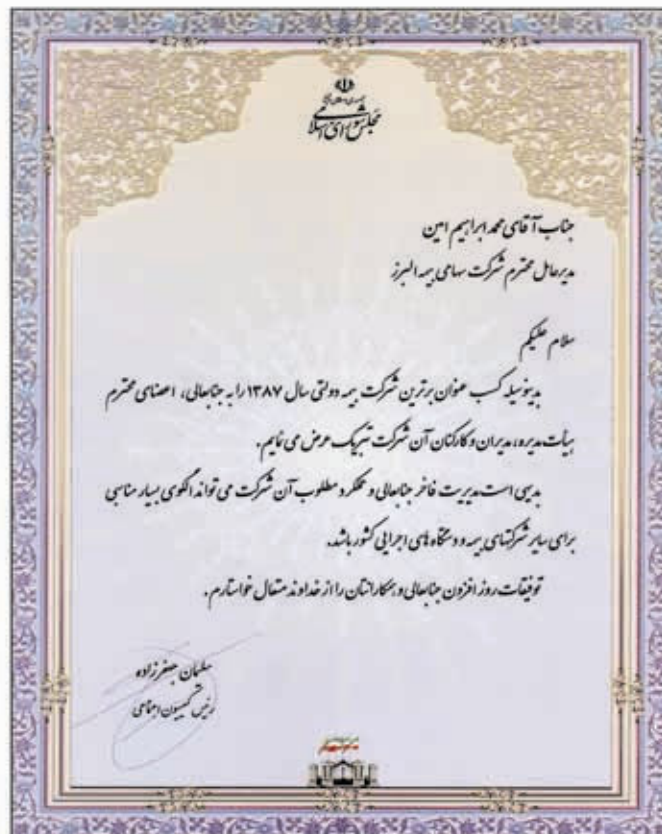 جمهوری اسلامی ایران
مجلس شورای اسلامی
جناب آقای محمد ابراهیم امین
مدیرعامل محترم شرکت سهامی بیمه البرز
سلام علیکم
بدینوسیله کسب عنوان برترین شرکت بیمه دولتی سال ۱۳۸۷ را به جنابعالی، اعضای محترم
هیأت مدیره، مدیران و کارکنان آن شرکت تبریک عرض می نمایم.
بدیهی است مدیریت فاخر جنابعالی و عملکرد مطلوب آن شرکت می تواند الگوی بسیار مناسبی
برای سایر شرکتهای بیمه و دستگاه های اجرایی کشور باشد.
توفیقات روز افزون جنابعالی و همکارانتان را از خداوند متعال خواستارم.
سلمان جعفرزاده
رئیس کمیسیون اجتماعی